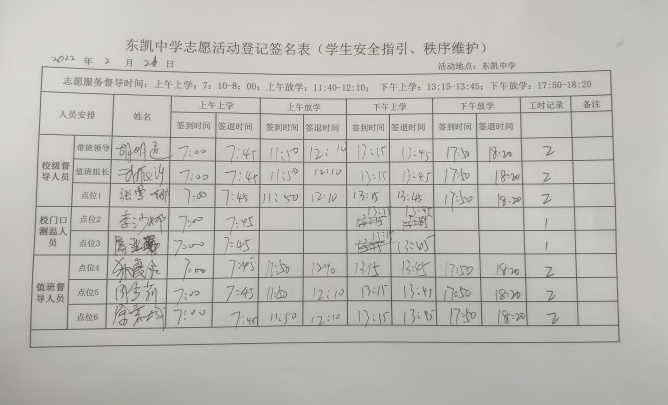 东凯中学志愿活动登记签名表（学生安全指引、秩序维护）
2022 年 2 月 日 活动地点：东凯中学
志愿服务督导时间：上午上学：7：10-8：00；上午放学：11:40-12:10； 下午上学：13:15-13:45；下午放学：17:50-18:20
人员安排 姓名 上午上学 上午放学 下午上学 下午放学 工时记录 备注
签到时间 签退时间 签到时间 签退时间 签到时间 签退时间 签到时间 签退时间
校级督导人员
带班领导 7:00 7:45 11:50 12:10 13:15 13:45 17:50 18:20 2
值班组长 7:00 7:45 11:50 12:10 13:15 13:45 17:50 18:20 2
点位1 7:00 7:45 11:50 12:10 13:15 13:45 17:50 18:20 2
校门口测温人员
点位2 7:00 7:45 13:15 13:45 1
点位3 7:00 7:45 13:15 13:45 1
值班督导人员
点位4 7:00 7:45 11:50 12:10 13:15 13:45 17:50 18:20 2
点位5 7:00 7:45 11:50 12:10 13:15 13:45 17:50 18:20 2
点位6 7:00 7:45 11:50 12:10 13:15 13:45 17:50 18:20 2